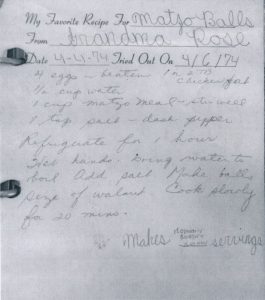 My Favorite Recipe For Matzo Balls
From Grandma Rose
Date 4-4-74 Tried Out On 4/6/74
4 eggs - beaten 1 or 2 TB
chicken fat
1/2 cup water
1 cup matzo meal - stir well
1 tsp salt - dash pepper
Refrigerate for 1 hour
Wet hands. Bring water to
boil Add salt Make balls
size of walnut Cook slowly
for 20 mins.
Makes servings